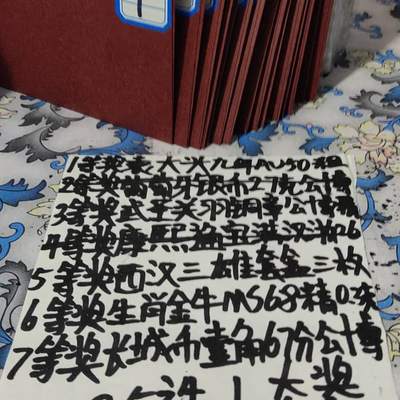 1等奖袁大头九年AU50
2等奖葡萄牙银币27克公博
3等奖武圣关羽铜章公博
4等奖康熙通宝满汉
5等奖西汉三雄套盒三枚
6等奖生肖金牛MS68精
7等奖长城币壹角67分公博
大奖